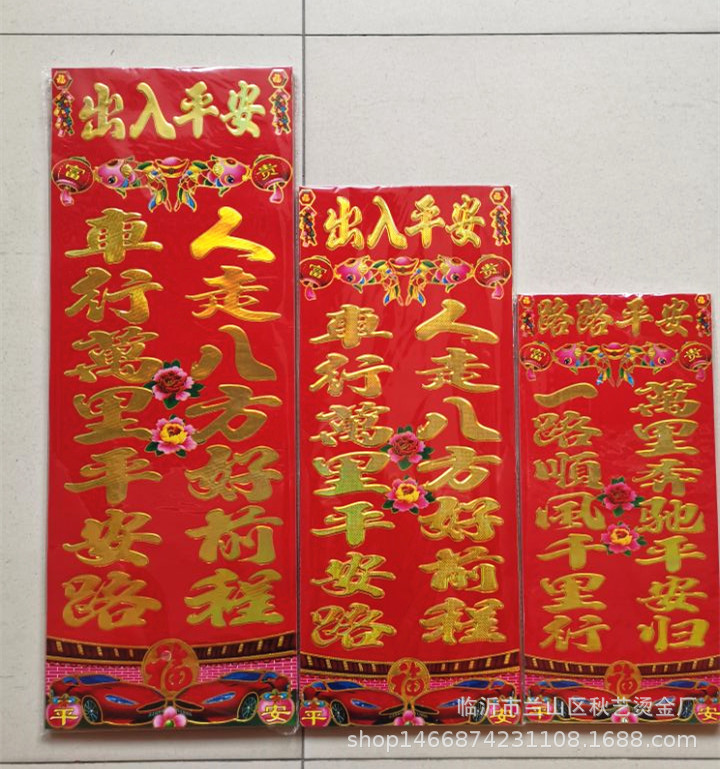 福 福
出入平安
富 贵
車行萬里平安路
人走八方好前程
福
平 安
福 福
出入平安
富 贵
車行萬里平安路
人走八方好前程
福
平 安
路路平安
富 贵
一路順風千里行
萬里奔驰平安归
福
平 安
临沂市兰山区秋艺烫金厂
shop1466874231108.1688.com